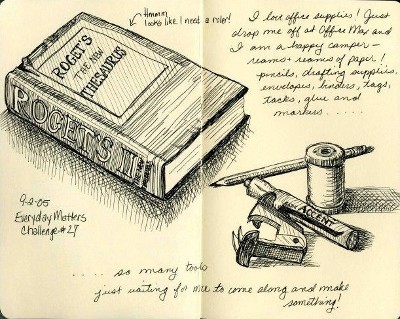 Hmmm
looks like I need a ruler!
ROGET'S
II
THE NEW
THESAURUS
ROGET'S II
9-2-05
Everyday Matters
Challenge #27
I love office supplies! Just
drop me off at Office Max and
I am a happy camper -
reams + reams of paper!
pencils, drafting supplies,
envelopes, binders, tags,
tacks, glue and
markers.....
ACCENT
.... so many tools
just waiting for me to come along and make
something!